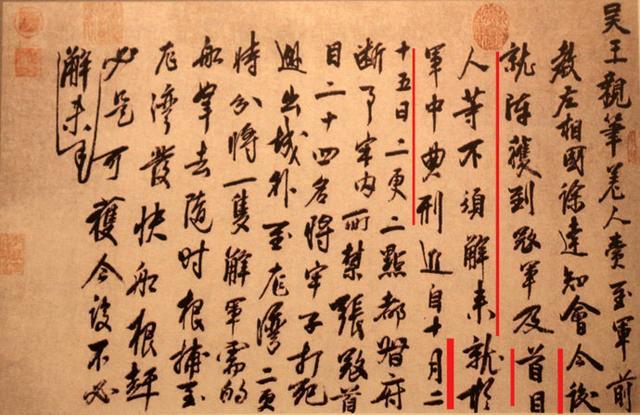 吴王親筆差人賫至軍前
教左相國徐達知會今後
就陣獲到敵軍及首目
人等不須解来就於
軍中典刑近自十月二
十五日二更二點都督府
断事牢内所禁張敵首
目二十四名將牢子打死
越出城外至龙灣二更
時分將一隻解軍需的
船拏去随时根捕至
龙灣發快船根趕
必是可獲今後不必
解来